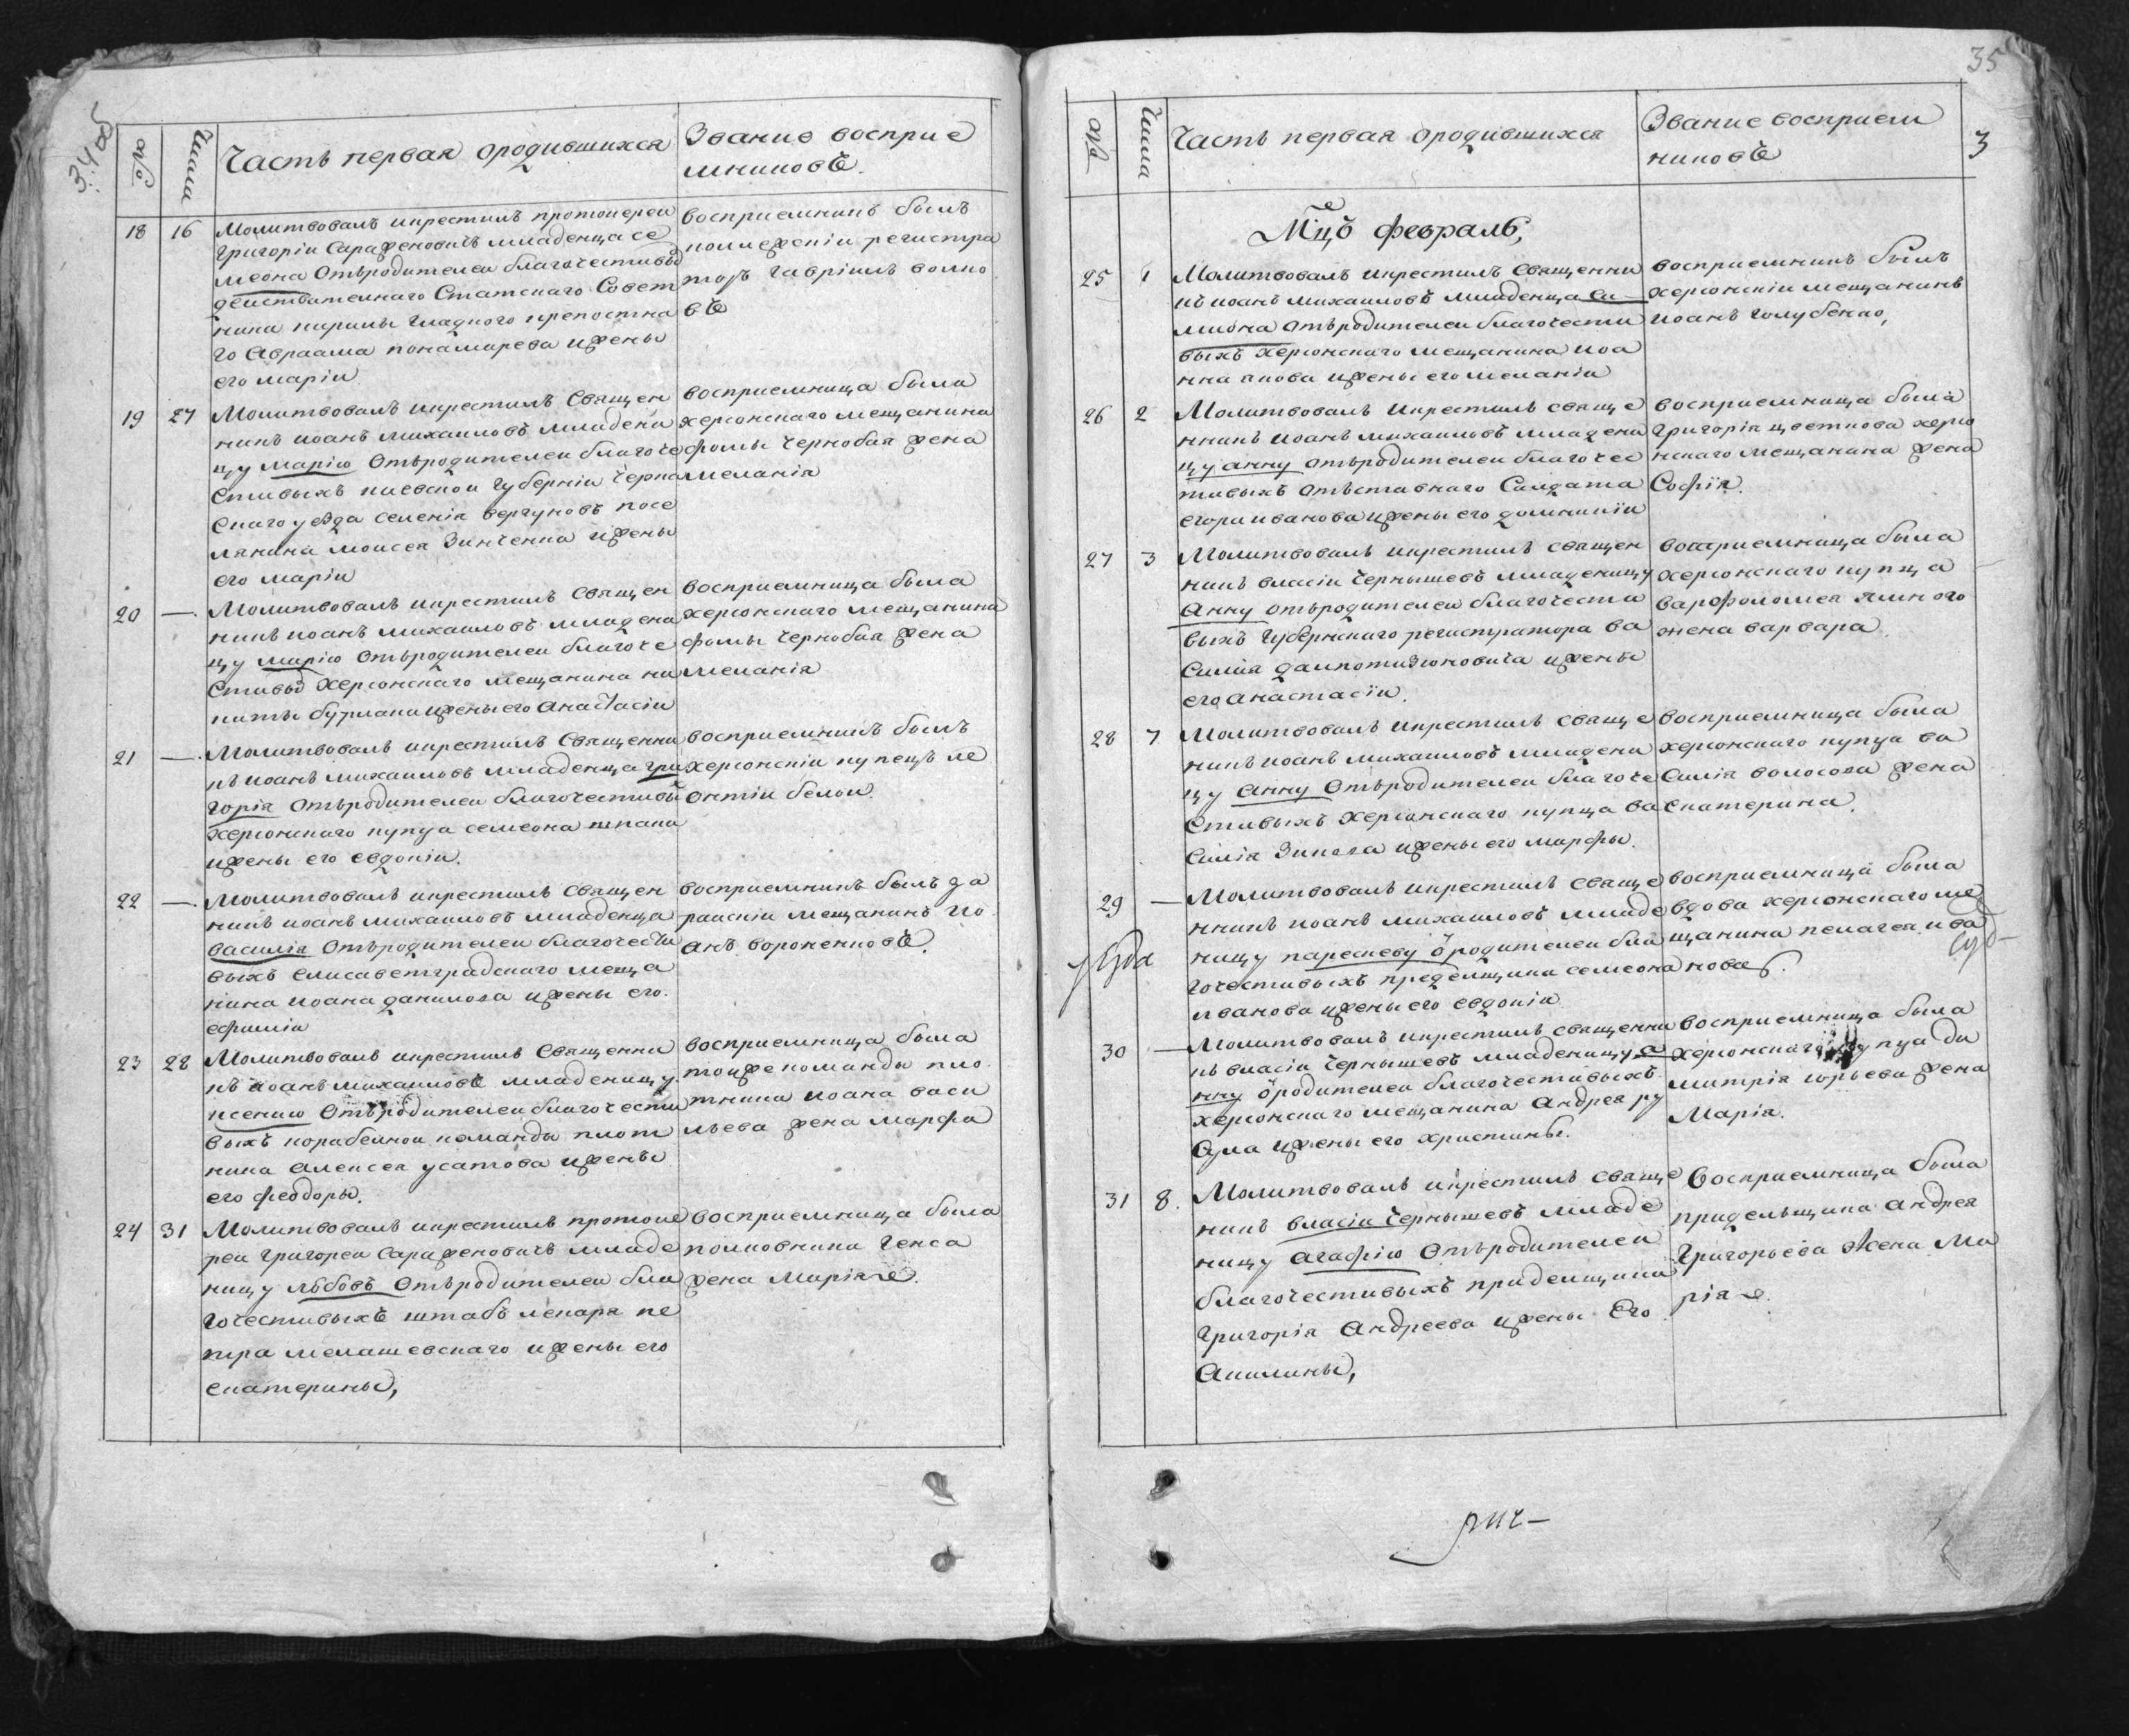 34 об
№ Числа Часть первая ородившихся Звание восприе
мниковъ.
18 16 Молитвовалъ икрестилъ протоиереи
Григоріи Сарафеновичъ младенца се
меона Отъродителеи благочестивы
действителнаго Статскаго Совет
ника кирилы Гладкого крепостна
го Авраама понамарева ижены
его маріи
восприемникъ былъ
колежскіи регистра
торъ Гавріилъ волко
въ
19 27 Молитвовалъ икрестилъ Священ
никъ иоанъ михаиловъ младени
цу Марію Отъродителеи благоче
Стивыхъ киевскои Губерніи Черка
Скаго уезда селенія вергуновъ посе
лянина моисея Зинченка ижены
его маріи
восприемница была
херсонскаго мещанина
фомы Чернобая жена
меланія
20 — Молитвовалъ икрестилъ Священ
никъ иоанъ михаиловъ младени
цу Марію Отъродителеи благоче
Стивы Херсонскаго мещанина ни
киты бурлаки ижены его Анастасіи
восприемница была
херсонскаго мещанина
фомы Чернобая жена
меланія
21 — Молитвовалъ икрестилъ Священни
къ иоанъ михаиловъ младенца гри
горія Отъродителеи благочестивы
херсонскаго купца семеона шпака
ижены его евдокіи.
восприемникъ былъ
херсонскіи купецъ ле
онтіи белои.
22 — Молитвовалъ икрестилъ Священ
никъ иоанъ михаиловъ младенца
василія Отъродителеи благочести
выхъ елисаветградскаго меща
нина иоана данилова ижены его
ефиміи
восприемникъ былъ га
раискіи мещанинъ ио
анъ вороненковъ.
23 28 Молитвовалъ икрестилъ Священни
къ иоанъ михаиловъ младеницу
ксению Отъродителеи благочести
выхъ корабелнои команды плот
ника Алексея усатова ижены
его феодоры.
восприемница была
тоиже команды пло
тника иоана васи
льева жена марфа
24 31 Молитвовалъ икрестилъ протоие
реи Григореи Сарафеновичъ младе
ницу любовъ Отъродителеи бла
гочестивыхъ штабъ лекаря пе
тра мелашевскаго ижены его
екатерины,
восприемница была
полковника Генса
жена Марія.
35
№ Числа Часть первая ородившихся Звание восприем
никовъ 3
Мцъ февраль,
25 1 Молитвовалъ икрестилъ Священни
къ иоанъ михаиловъ младенца си
миона Отъродителеи благочести
выхъ херсонскаго мещанина иоа
нна акова ижены его меланіи
восприемникъ былъ
херсонскіи мещанинъ
иоанъ голубенко,
26 2 Молитвовалъ икрестилъ свяще
нникъ иоанъ михаиловъ младени
цу анну отъродителеи благочес
тивыхъ отъставнаго Салдата
егора иванова ижены его домникіи
восприемница была
григорія цветкова херсо
нскаго мещанина жена
Софія.
27 3 Молитвовалъ икрестилъ священ
никъ власіи Чернышевъ младеницу
Анну отъродителеи благочести
выхъ Губернскаго регистратора ва
Силия ижены
его анастасіи.
восприемница была
херсонскаго купца
варфоломея ямного
жена варвара.
28 7 Молитвовалъ икрестилъ свяще
никъ иоанъ михаиловъ младени
цу Анну Отъродителеи благоче
Стивыхъ херсонскаго купца ва
Силія Зикова ижены его марфы.
восприемница была
херсонскаго купца ва
Силія волосова жена
екатерина.
29 — Молитвовалъ икрестилъ свяще
нникъ иоанъ михаиловъ младе
ницу параскеву ородителеи бла
гочестивыхъ пределщика семеона
иванова ижены его евдокіи
восприемница была
вдова херсонскаго ме
щанина пелагея ива
нова.
30 — Молитвовалъ икрестилъ священни
къ власіи Чернышевъ младеницу а
нну ородителеи благочестивыхъ
херсонскаго мещанина Андрея ру
ижены его христины.
восприемница была
херсонскаго купца ди
митрія юрьева жена
Марія.
31 8. Молитвовалъ икрестилъ свяще
никъ власіи Чернышевъ младе
ницу агафію Отъродителеи
благочестивыхъ приделщика
григорія Андреева ижены Его
Акилины,
Восприемница была
придельщика андрея
Григорьева Жена Ма
рія.